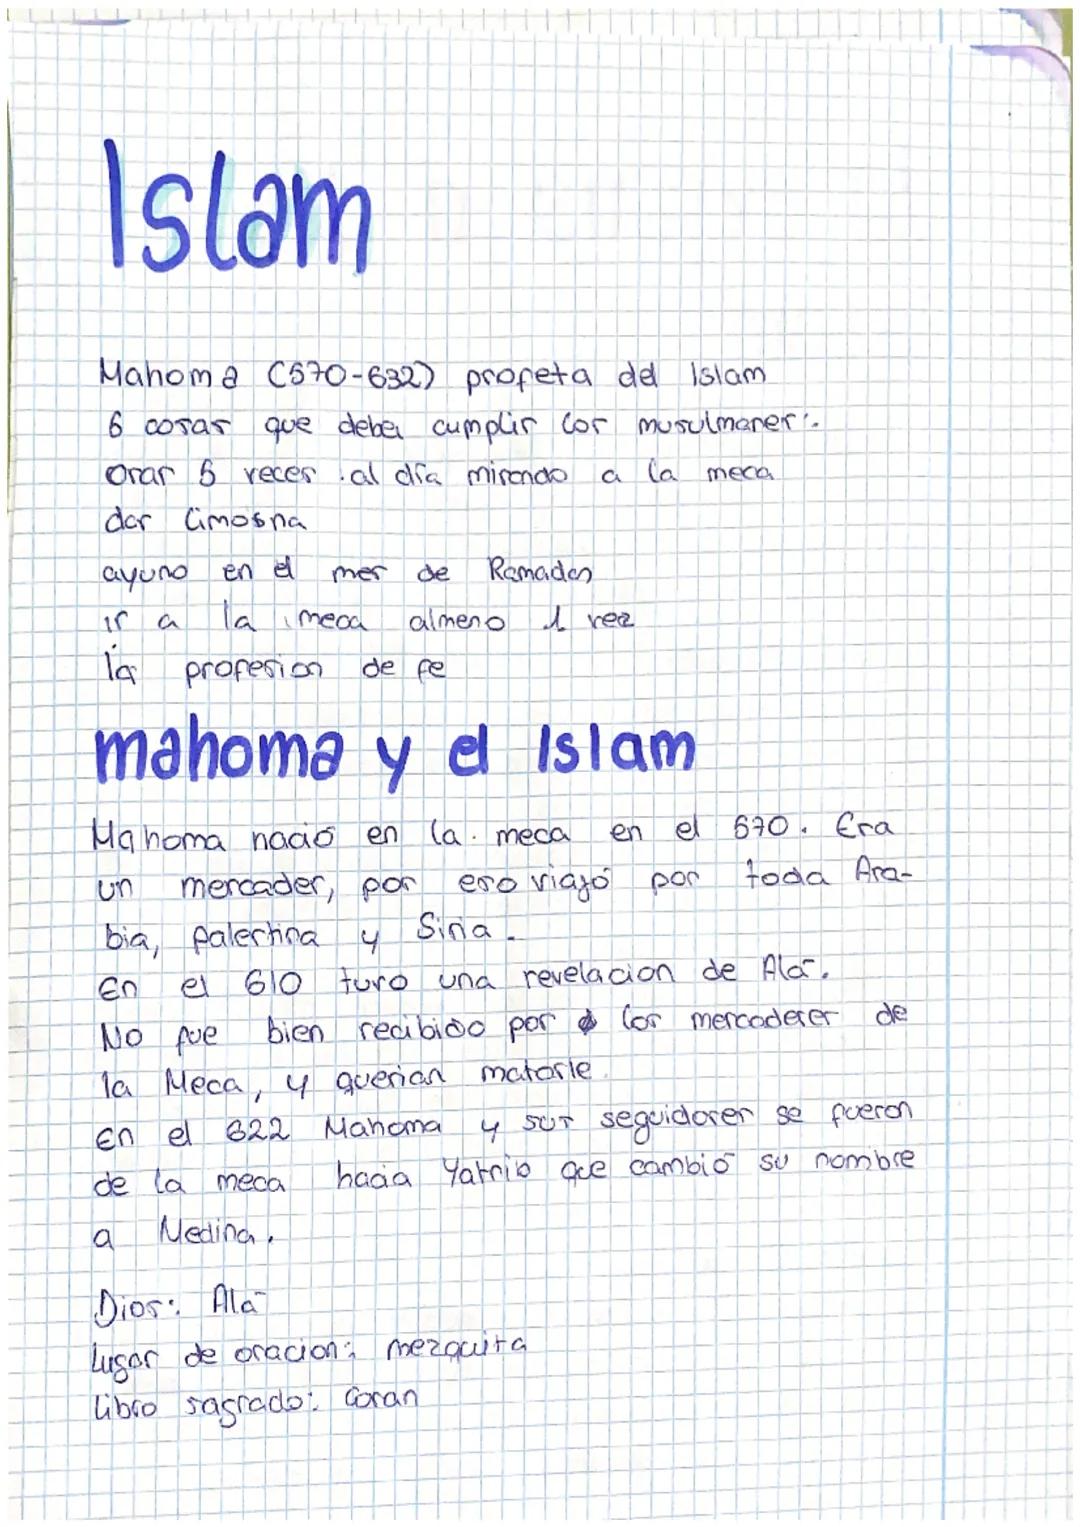 Islam
Mahoma (570-632) profeta del Islam
6 cosas que deben cumplir los musulmanes:
Orar 5 veces al día mirando a la meca
dar limosna
ayuno en el mes de Ramadan
ir a la meca almeno 1 vez
la profesion de fe
mahoma y el Islam
Mahoma nació en la meca en el 570. Era
un mercader, por eso viajó por toda Ara-
bia, palestina y Siria.
En el 610 tuvo una revelacion de Alá.
No fue bien recibido por los mercaderes de
la Meca, y querian matarle.
En el 622 Mahoma y sus seguidores se fueron
de la meca hacia Yatrib que cambió su nombre
a Medina.
Dios: Alá
Lugar de oracion: mezquita
Libro sagrado: Coran